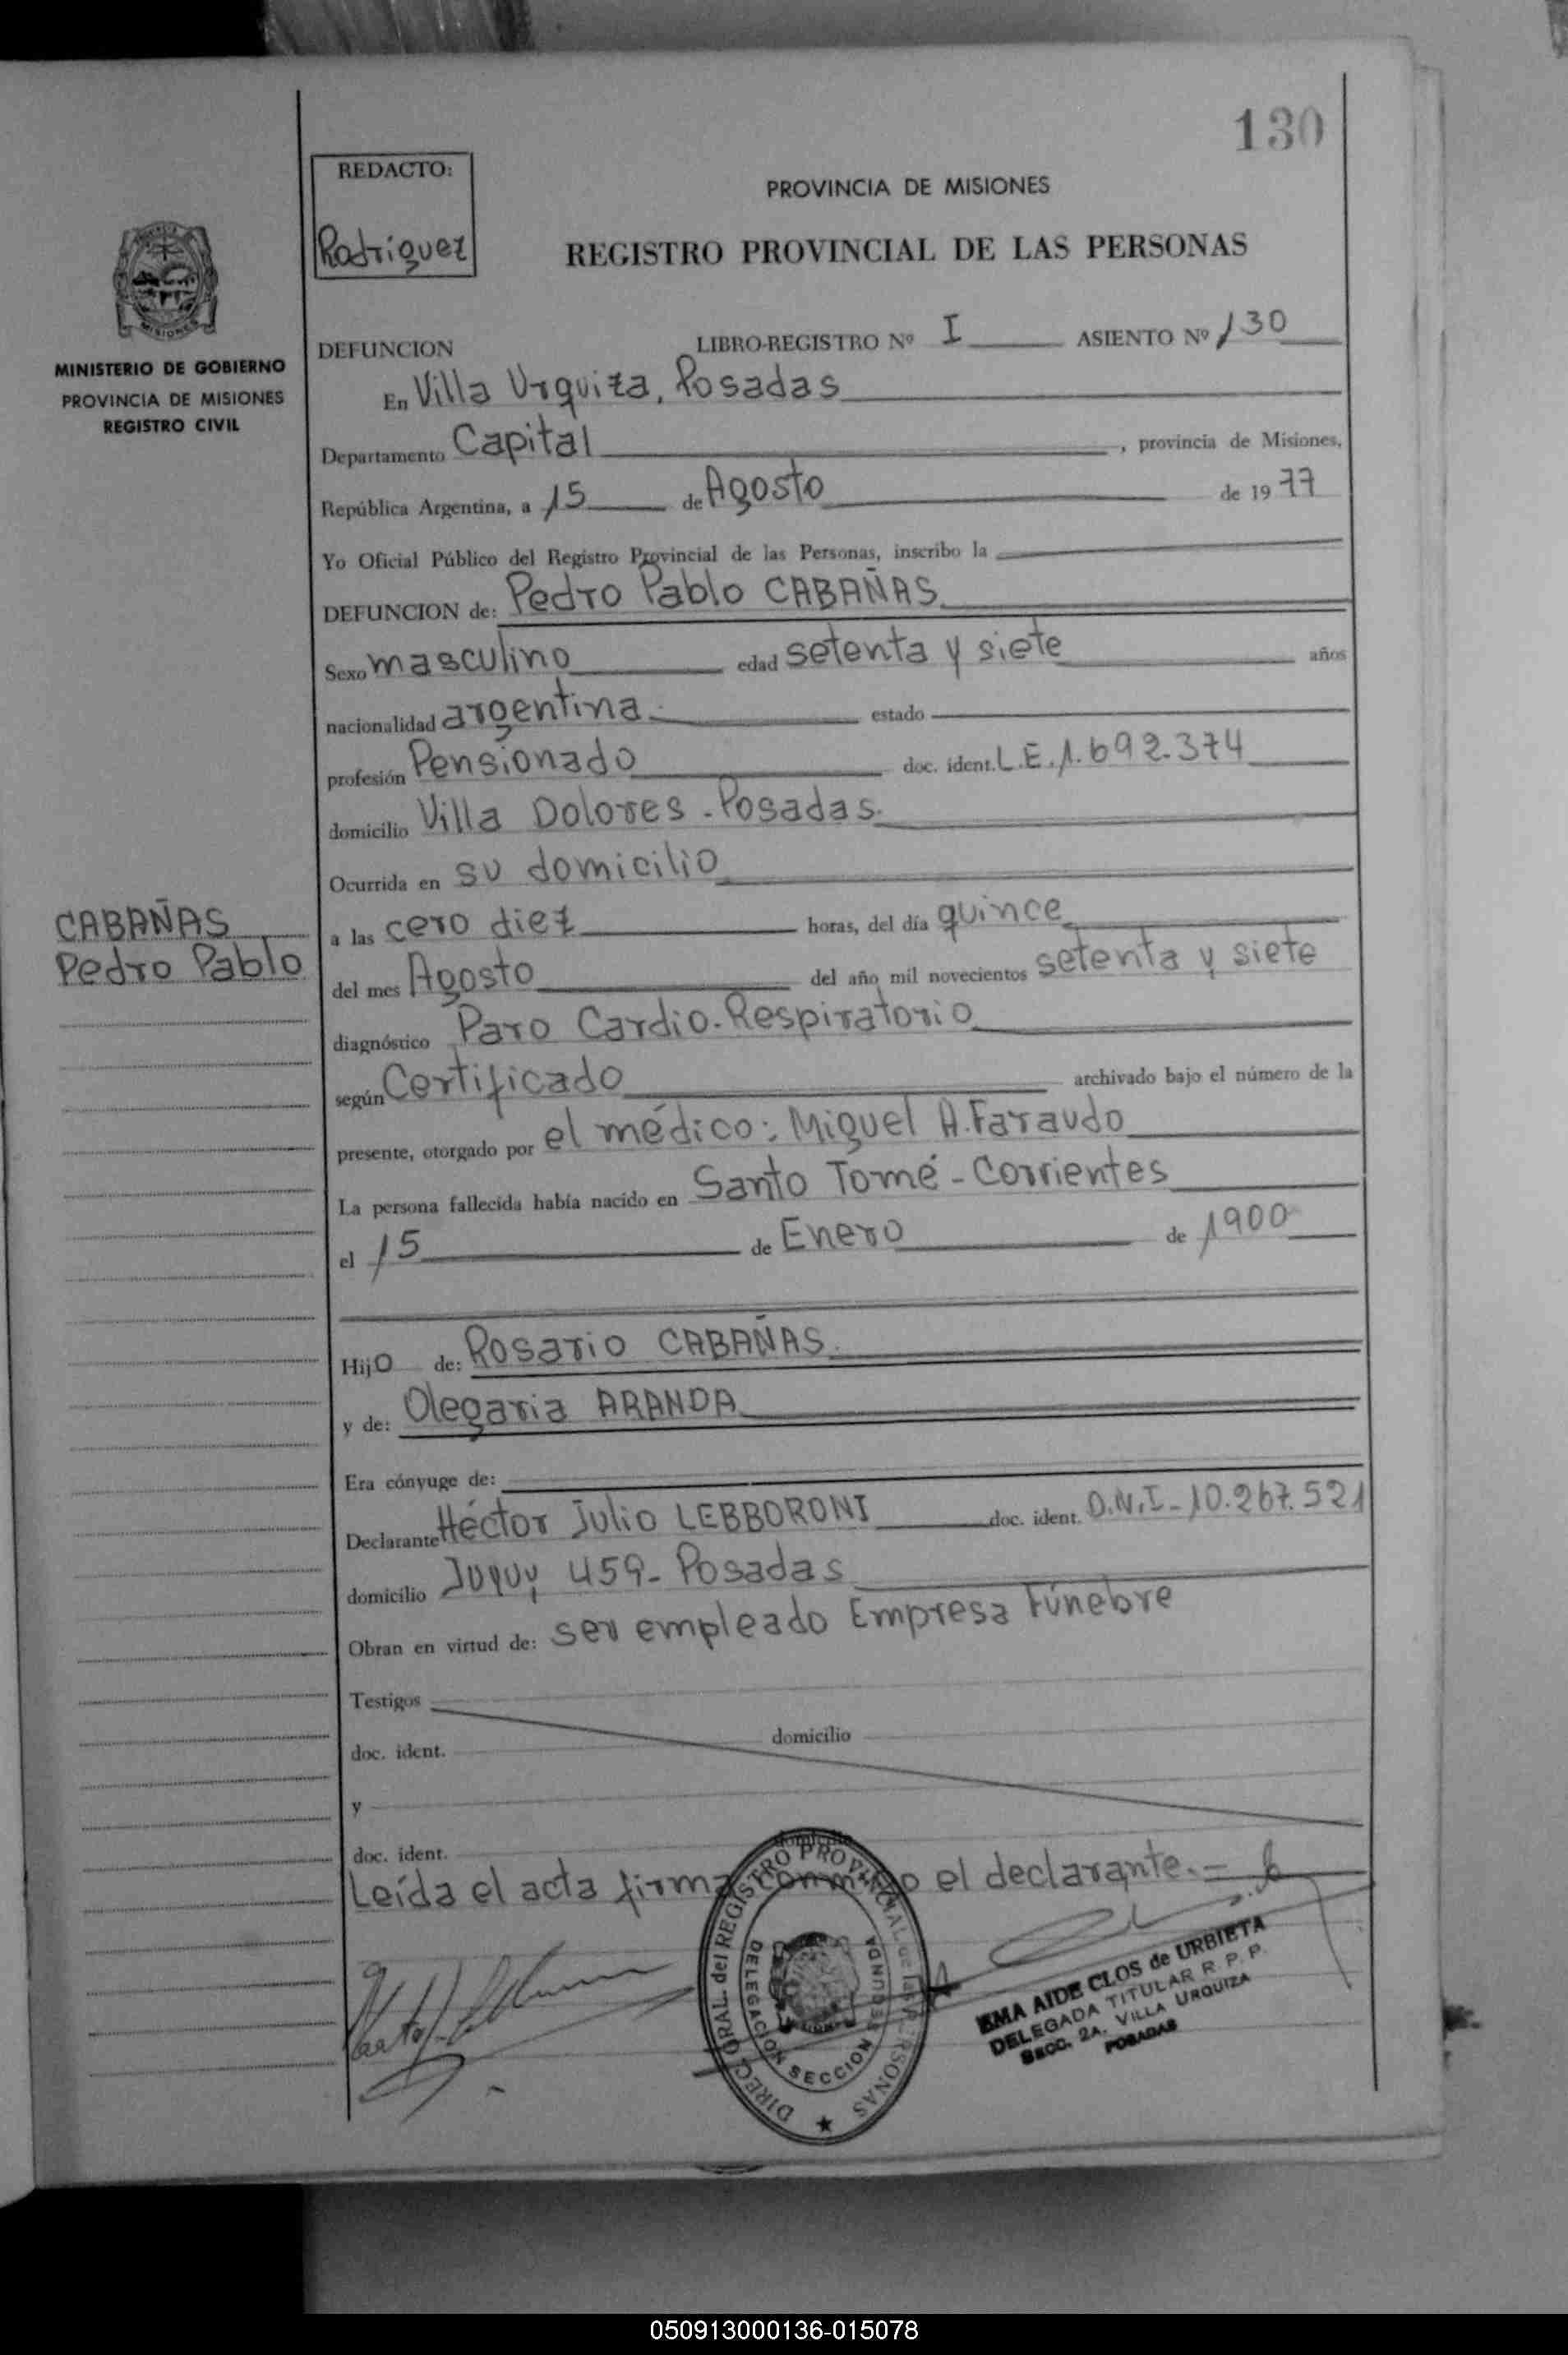 130
REDACTO:
Rodriguez
PROVINCIA DE MISIONES
REGISTRO PROVINCIAL DE LAS PERSONAS
MISIONES
MINISTERIO DE GOBIERNO
PROVINCIA DE MISIONES
REGISTRO CIVIL
DEFUNCION LIBRO-REGISTRO Nº I ASIENTO Nº 130
En Villa Urquiza, Posadas
Departamento Capital, provincia de Misiones,
República Argentina, a 15 de Agosto de 1977
Yo Oficial Público del Registro Provincial de las Personas, inscribo la
DEFUNCION de: Pedro Pablo CABAÑAS
Sexo masculino edad setenta y siete años
nacionalidad argentina. estado
profesión Pensionado doc. ident. L.E. 1.692.374
domicilio Villa Dolores - Posadas.
Ocurrida en su domicilio
CABAÑAS
Pedro Pablo
a las cero diez horas, del día quince
del mes Agosto del año mil novecientos setenta y siete
diagnóstico Paro Cardio-Respiratorio
según Certificado archivado bajo el número de la
presente, otorgado por el médico: Miguel A. Faraudo
La persona fallecida había nacido en Santo Tomé - Corrientes
el 15 de Enero de 1900
Hijo de: Rosario CABAÑAS.
y de: Olegaria ARANDA
Era cónyuge de:
Declarante Héctor Julio LEBBORONI doc. ident. D.N.I- 10.267.521
domicilio Jujuy 459- Posadas
Obran en virtud de: ser empleado Empresa Fúnebre
Testigos
doc. ident. domicilio
y
doc. ident. domicilio
Leída el acta firma conmigo el declarante.-
DIREC. GRAL. del REGISTRO PROVINCIAL de las PERSONAS
DELEGACION SECCION SEGUNDA
EMA AIDE CLOS de URBIETA
DELEGADA TITULAR R. P. P.
SECC. 2A. VILLA URQUIZA
POSADAS
050913000136-015078